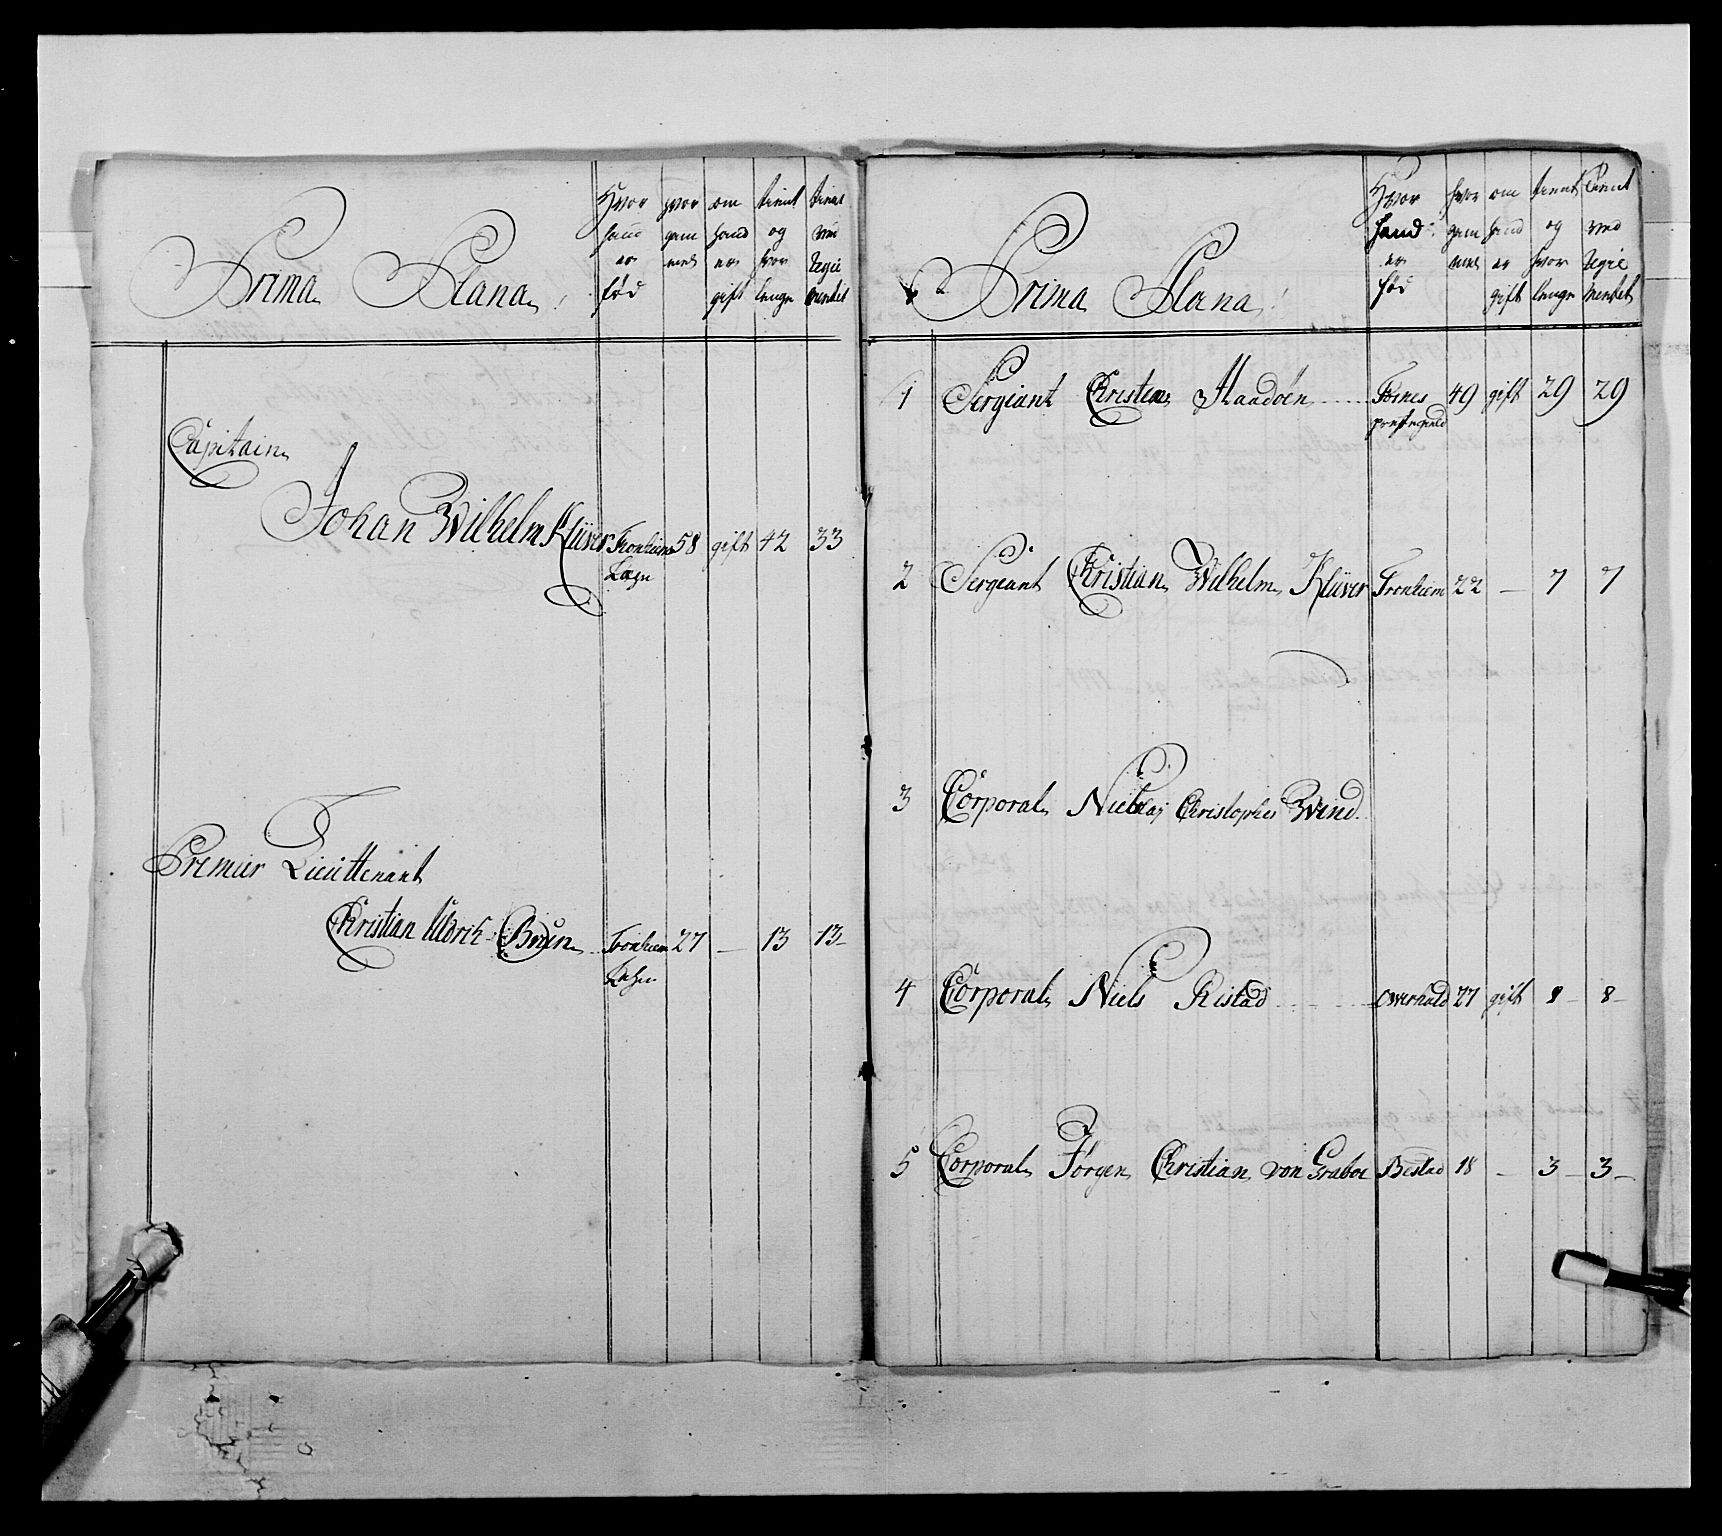 Prima Plana
Hvor hand er fød
hvor gam mel
om hand er gift
tient og hvor lenge
tient ved Regie mentet
Capitain
Johan Wilhelm Klüver Tronhiems Lagn 58 gift 42 33
Premier Lieuttenant
Christian Uldrich Brun Tronhiem 27 — 13 13
Prima Plana
Hvor hand er fød
hvor gam mel
om hand er gift
tient og hvor lenge
tient ved Regie mentet
1 Sergiant Christen Haadøen Fosnes 49 gift 29 29
præstegield
2 Sergeant Christian Wilhelm Klüver Tronhiem 22 — 7 7
3 Corporal Nicolaj Christopher Wind
4 Corporal Niels Ristad Overhald 27 gift 8 8
5 Corporal Jørgen Christian von Grabow Bestad 18 — 3 3